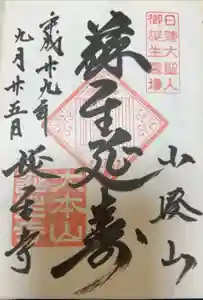 日蓮大聖人
御誕生霊場
小湊山
蘇生延壽
平成廿九年
九月廿五日
誕生寺
大本山
誕生寺